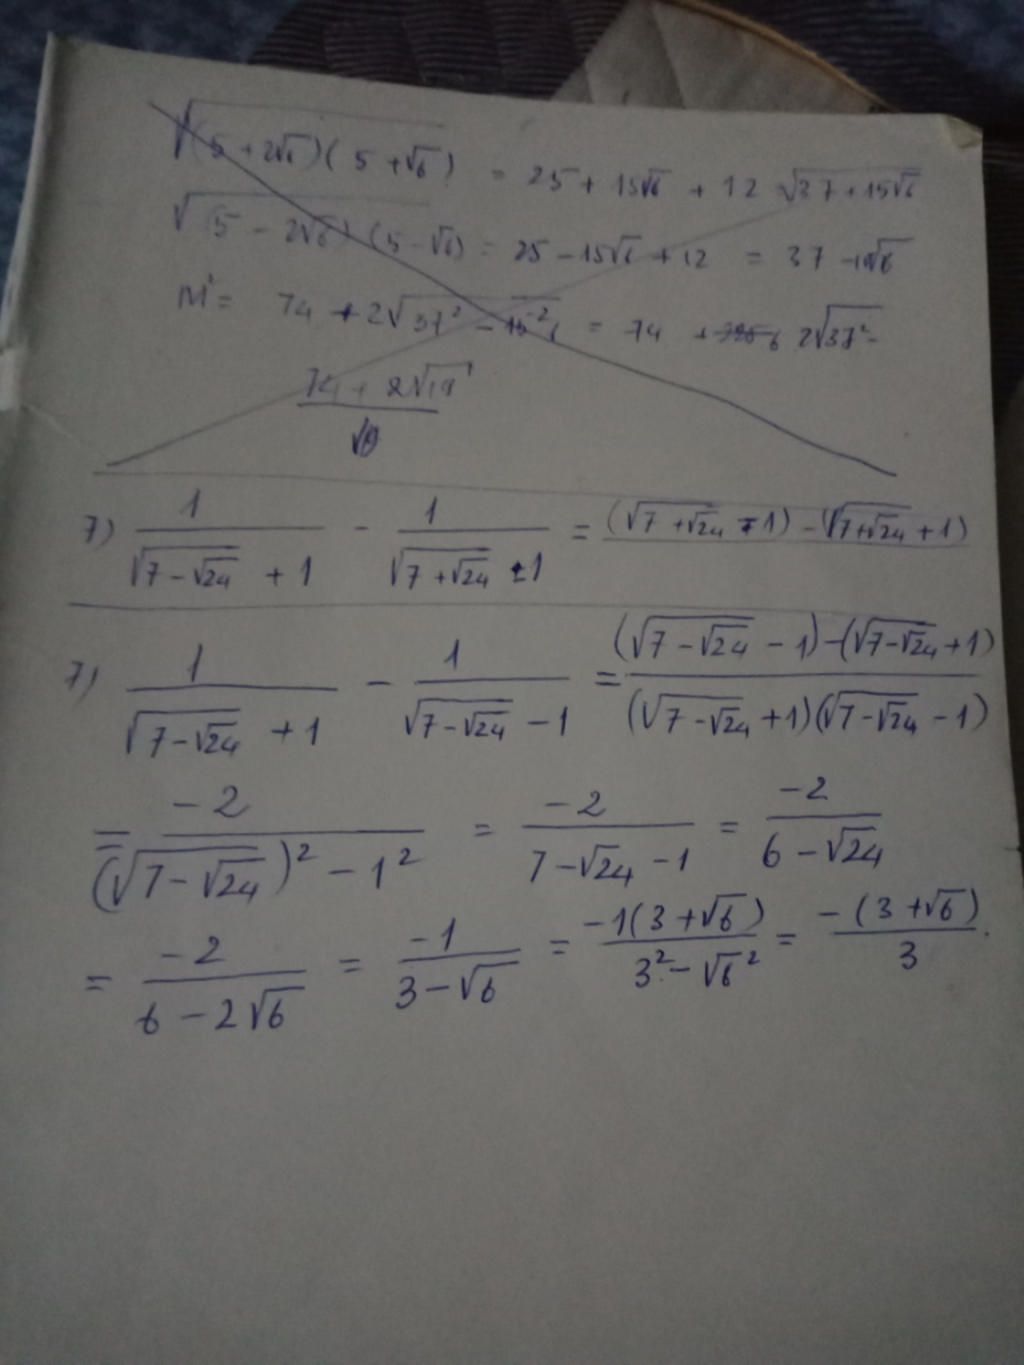 √((5 + 2√6)(5 + √6)) = 25 + 15√6 + 12 √(37 + 15√6)
√((5 - 2√6)(5 - √6)) = 25 - 15√6 + 12 = 37 - 15√6
M² = 74 + 2√(37² - 15²·6) = 74 + 2√(37² -
74 + 2√19 / √
7) 1/(√(7 - √24) + 1) - 1/(√(7 + √24) ± 1) = (√(7 + √24) ∓ 1) - (√(7 + √24) + 1)
7) 1/(√(7 - √24) + 1) - 1/(√(7 - √24) - 1) = ((√(7 - √24) - 1) - (√(7 - √24) + 1))/((√(7 - √24) + 1)(√(7 - √24) - 1))
= -2/((√(7 - √24))² - 1²) = -2/(7 - √24 - 1) = -2/(6 - √24)
= -2/(6 - 2√6) = -1/(3 - √6) = -1(3 + √6)/(3² - √6²) = -(3 + √6)/3.